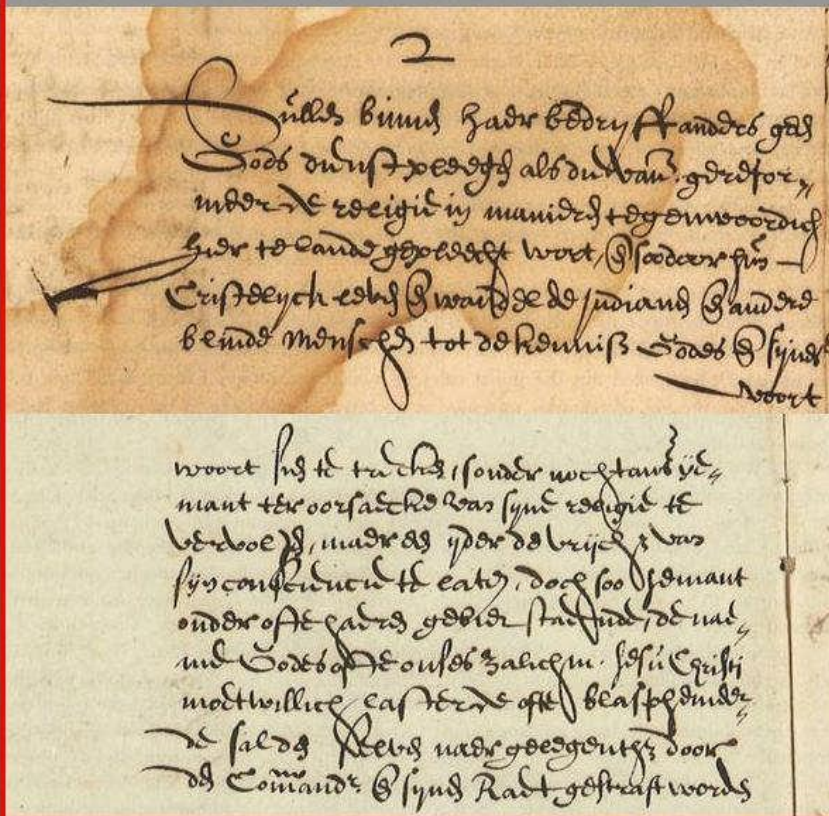 2
Sullen binnen haer bedryff anders geen
Gods dienst pleegen als die van gerefor-
meerde religie in manieren tegenwoordich
hier te lande gepleecht wort, en soo door hun
Cristelyck leven en wandel de Indianen en andere
blinde menschen tot de kennis Godes en synes
woort
woort sien te trecken, sonder nochtans ye-
mant ter oorsaecke van syne religie te
vervolgen, maer een yder de vrijch.t van
syn consciencie te laten, doch soo yemant
onder ofte haeren gebiet staende, de nae-
me Godes ofte onses Zalichm. Jesu Christi
moetwillich lasterde ofte blasphemeer-
de sal de selven naer gelegenth.t door
den Com̄andr en synen Raet gestraft worden